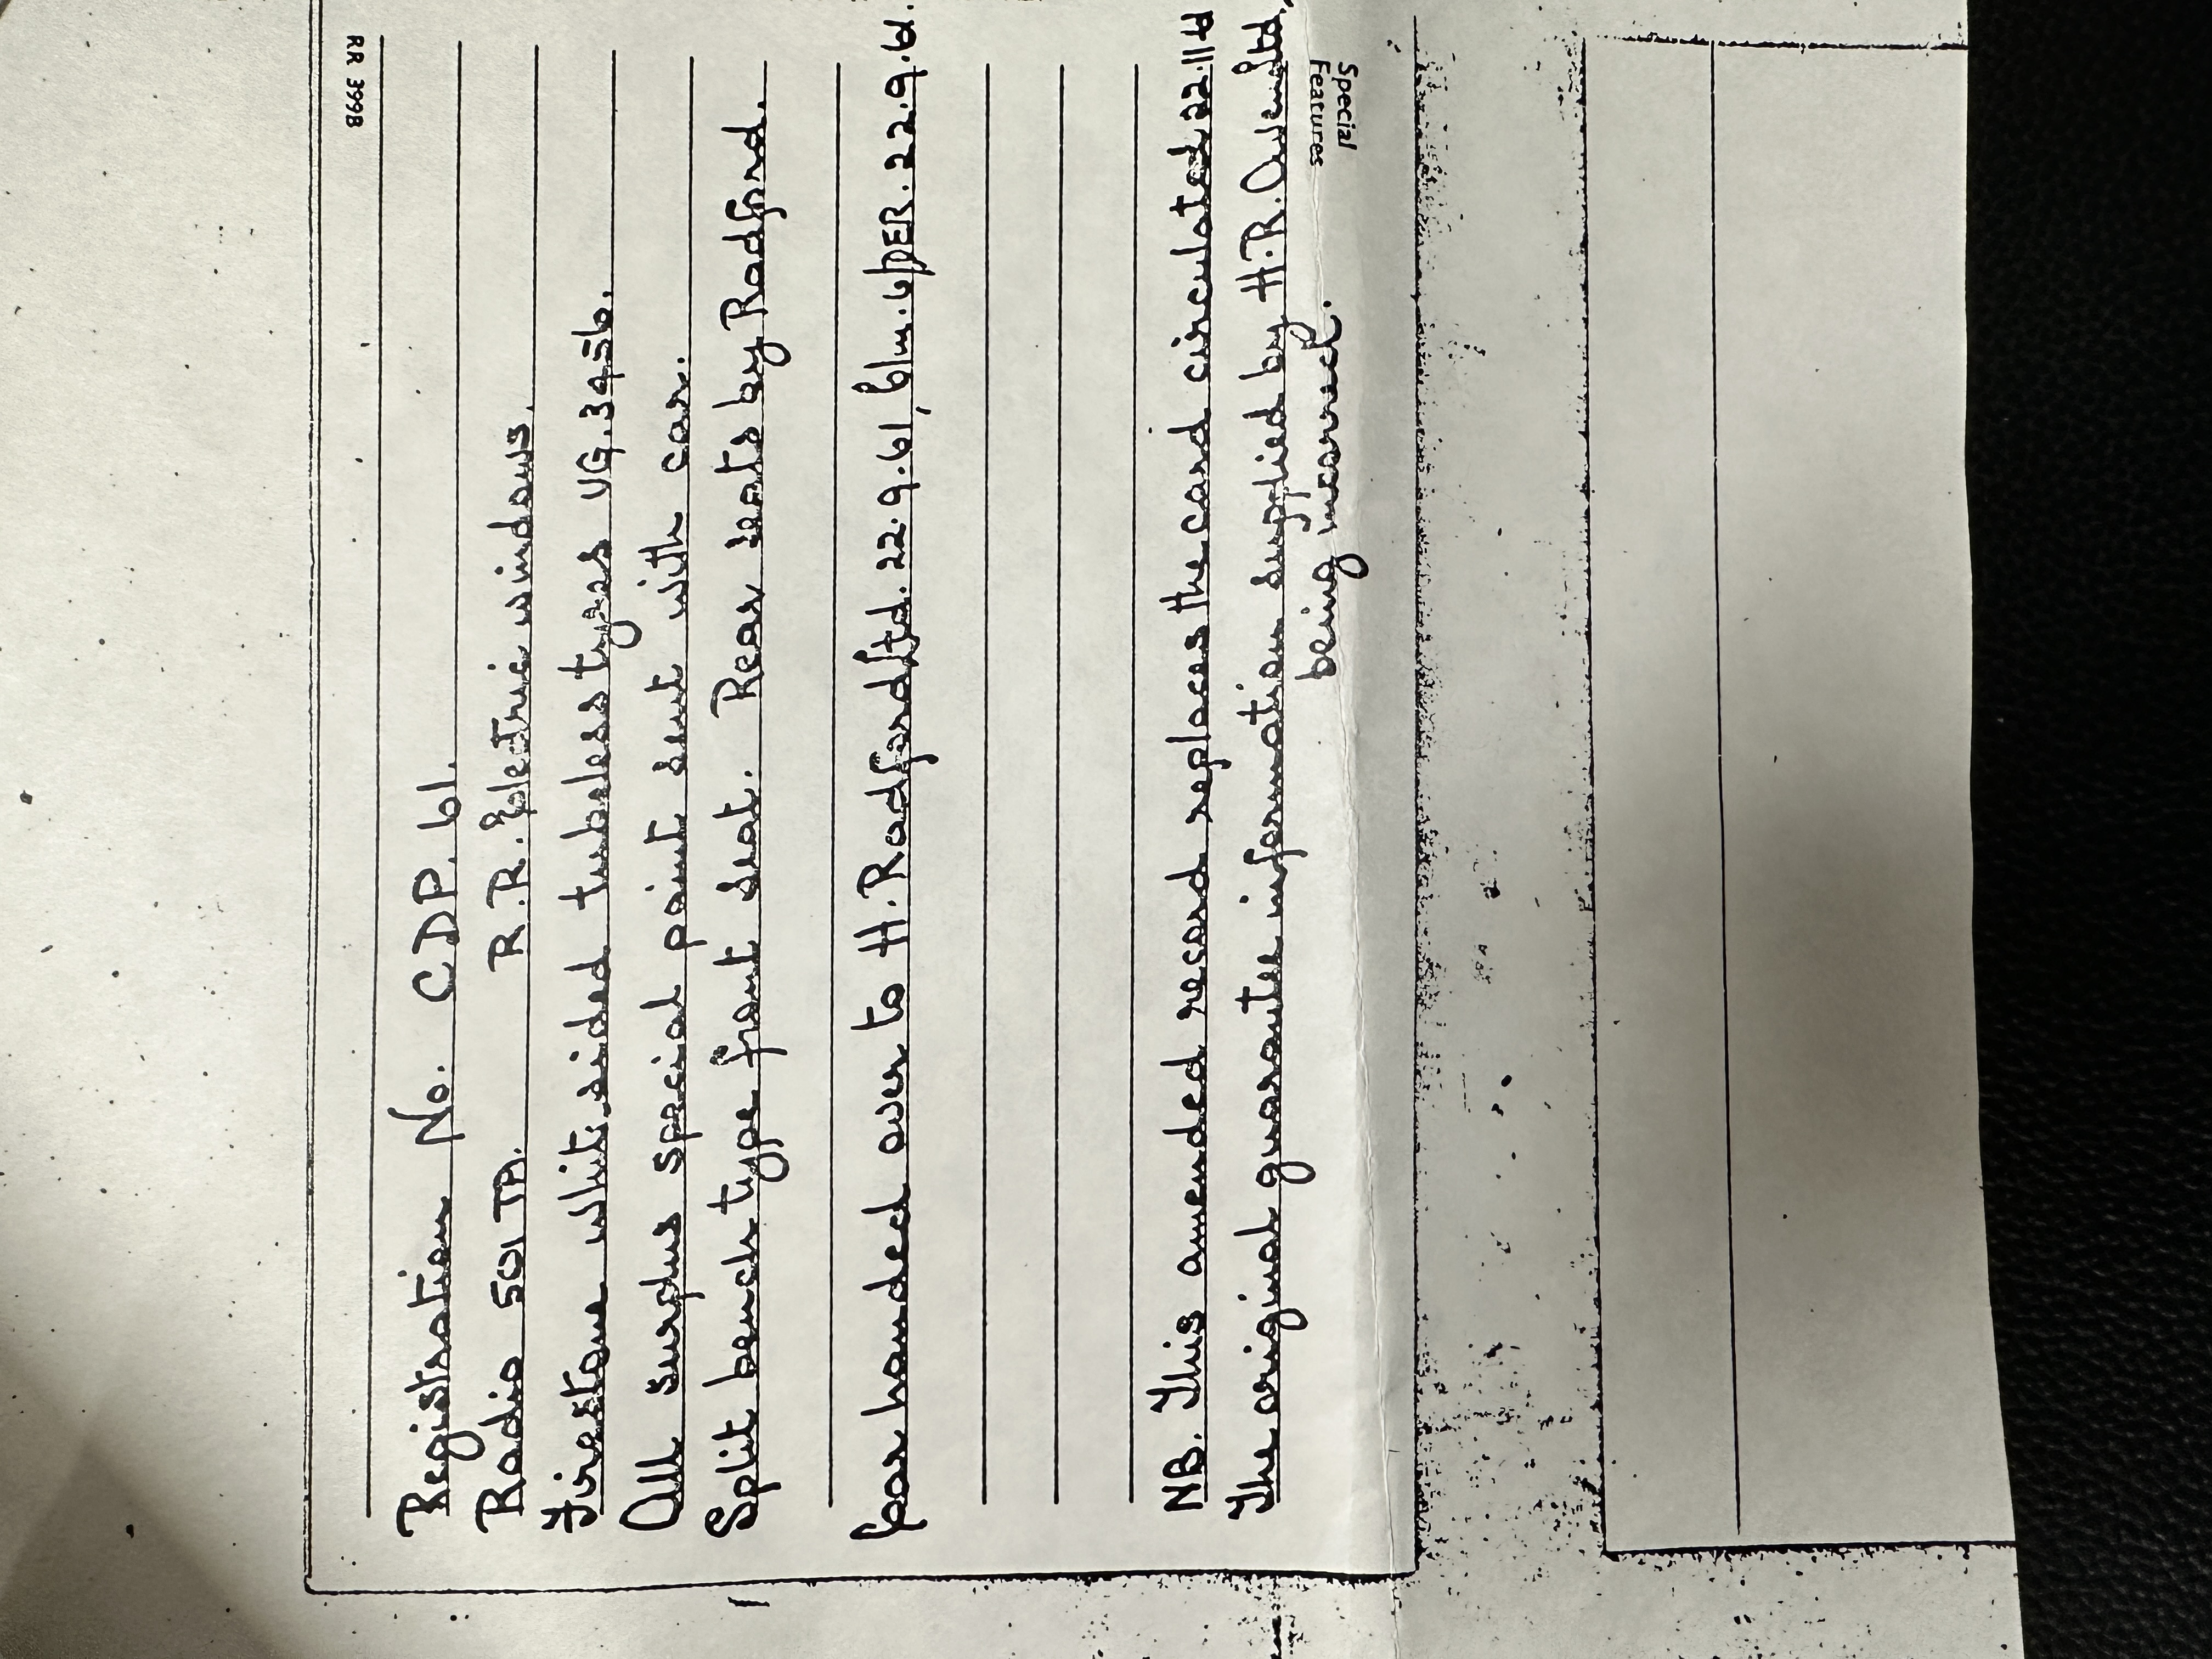 Registration No. CDP. 61.
Radio 501 TA. R.R. Electric windows.
Firestone white sided tubeless tyres VG. 3456.
All surplus special paint sent with car.
Split bench type front seat. Rear seats by Radford.
Car handed over to H. Radford Ltd. 22.9.61, DER. 22.9.61.
NB. This amended record replaces the card circulated 22.11.
The original guarantee information supplied by H.R. Owen Ltd,
being incorrect.
Special
Features
RR 399B